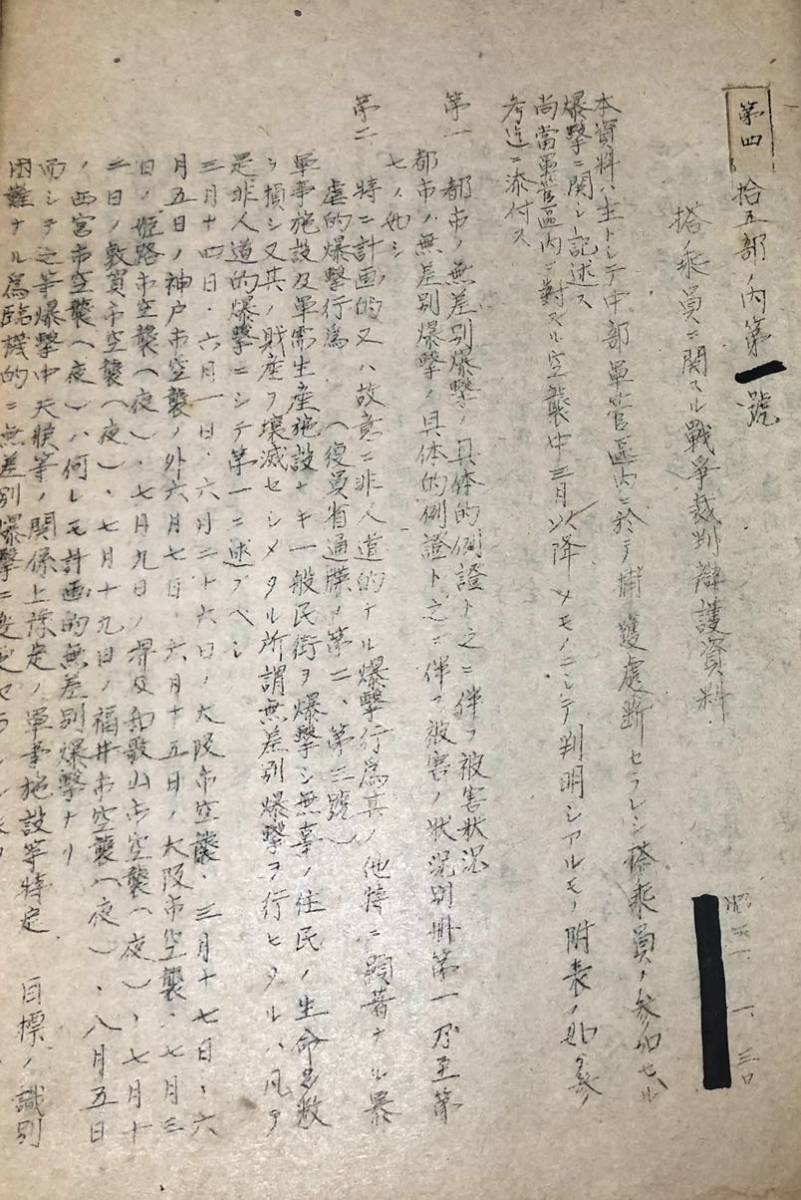 第四
拾五部ノ内第 號
搭乘員ニ関スル戰爭裁判辯護資料
昭二一、一、三〇
本資料ハ主トシテ中部軍管區內ニ於テ捕獲處断セラレシ搭乘員ノ參加セル
爆擊ニ関シ記述ス
尚當軍管區内ニ對スル空襲中三月以降ノモノニシテ判明シアルモノ附表ノ如ク参
考迄ニ添付ス
第一 都市ノ無差別爆擊ノ具体的例證ト之ニ伴フ被害状況
都市ノ無差別爆擊ノ具体的例證ト之ニ伴フ被害ノ状況別冊第一乃至第
七ノ如シ
第二 特ニ計画的又ハ故意ニ非人道的ナル爆擊行為其ノ他特ニ顕著ナル暴
虐的爆擊行為 (復員省通牒ノ第二、第三號)
軍事施設及軍需生産施設ナキ一般民街ヲ爆擊シ無辜ノ住民ノ生命多数
ヲ損シ又其ノ財産ヲ壊滅セシメタル所謂無差別爆擊ヲ行ヒタルハ凡テ
是非人道的爆擊ニシテ第一ニ述ブベシ
三月十四日、六月一日、六月二十六日ノ大阪市空襲、三月十七日、六
月五日ノ神戸市空襲ノ外六月七日、六月十五日ノ大阪市空襲、七月三
日ノ姫路市空襲(夜)、七月九日ノ堺及和歌山市空襲(夜)、七月十
二日ノ敦賀市空襲(夜)、七月十九日ノ福井市空襲(夜)、八月五日
ノ西宮市空襲(夜)ハ何レモ計画的無差別爆擊ナリ
而シテ之等爆擊中天候等ノ関係上豫定ノ軍事施設等特定 目標ノ識別
困難ナル為臨機的ニ無差別爆擊ニ変更セラレ